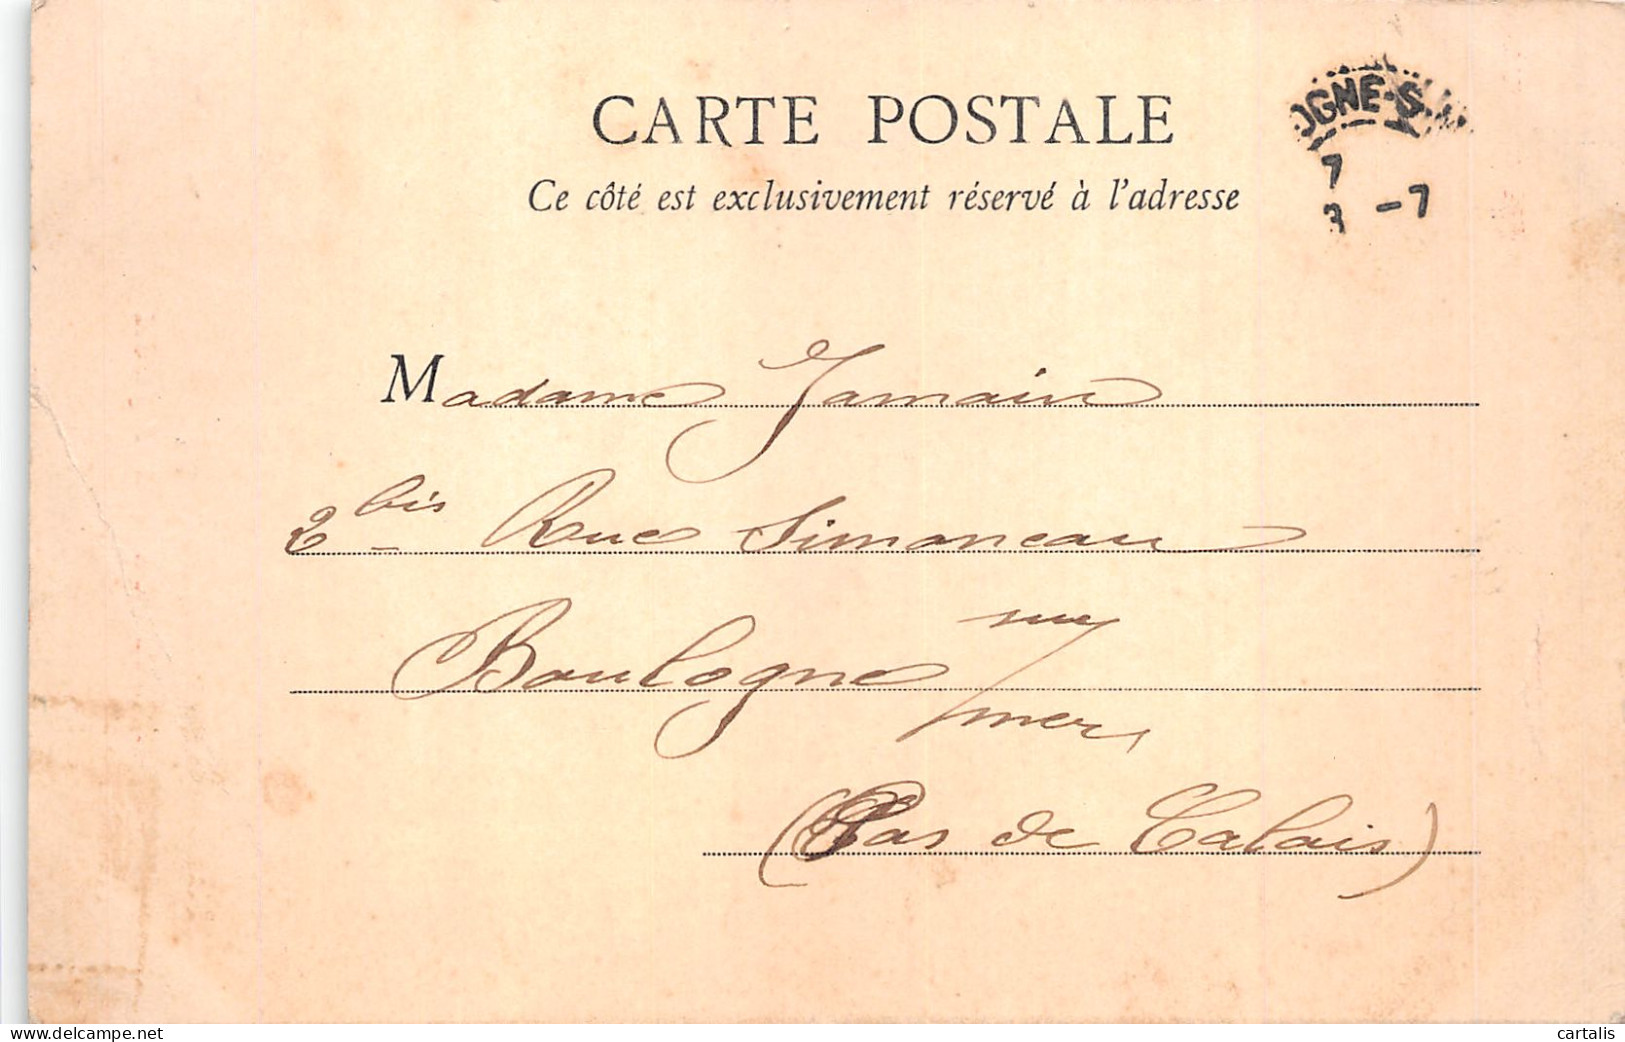 CARTE POSTALE
OGNE-S
Ce côté est exclusivement réservé à l'adresse
7
3 -7
Madame Jamain
2 bis Rue Simoneau
Boulogne sur/mer
(Pas de Calais)
www.delcampe.net
cartalis